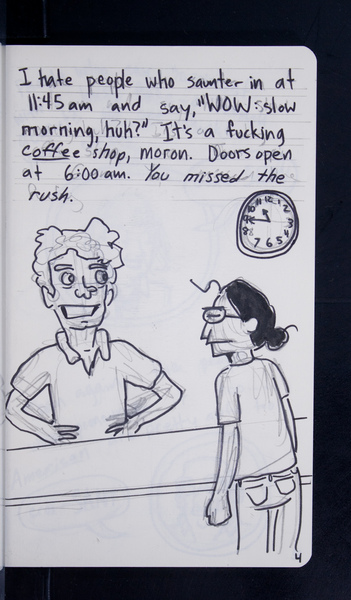 I hate people who saunter in at
11:45 am and say, "WOW: slow
morning, huh?" It's a fucking
coffee shop, moron. Doors open
at 6:00 am. You missed the
rush.
11 12 1
10 2
9 3
8 4
7 6 5
4